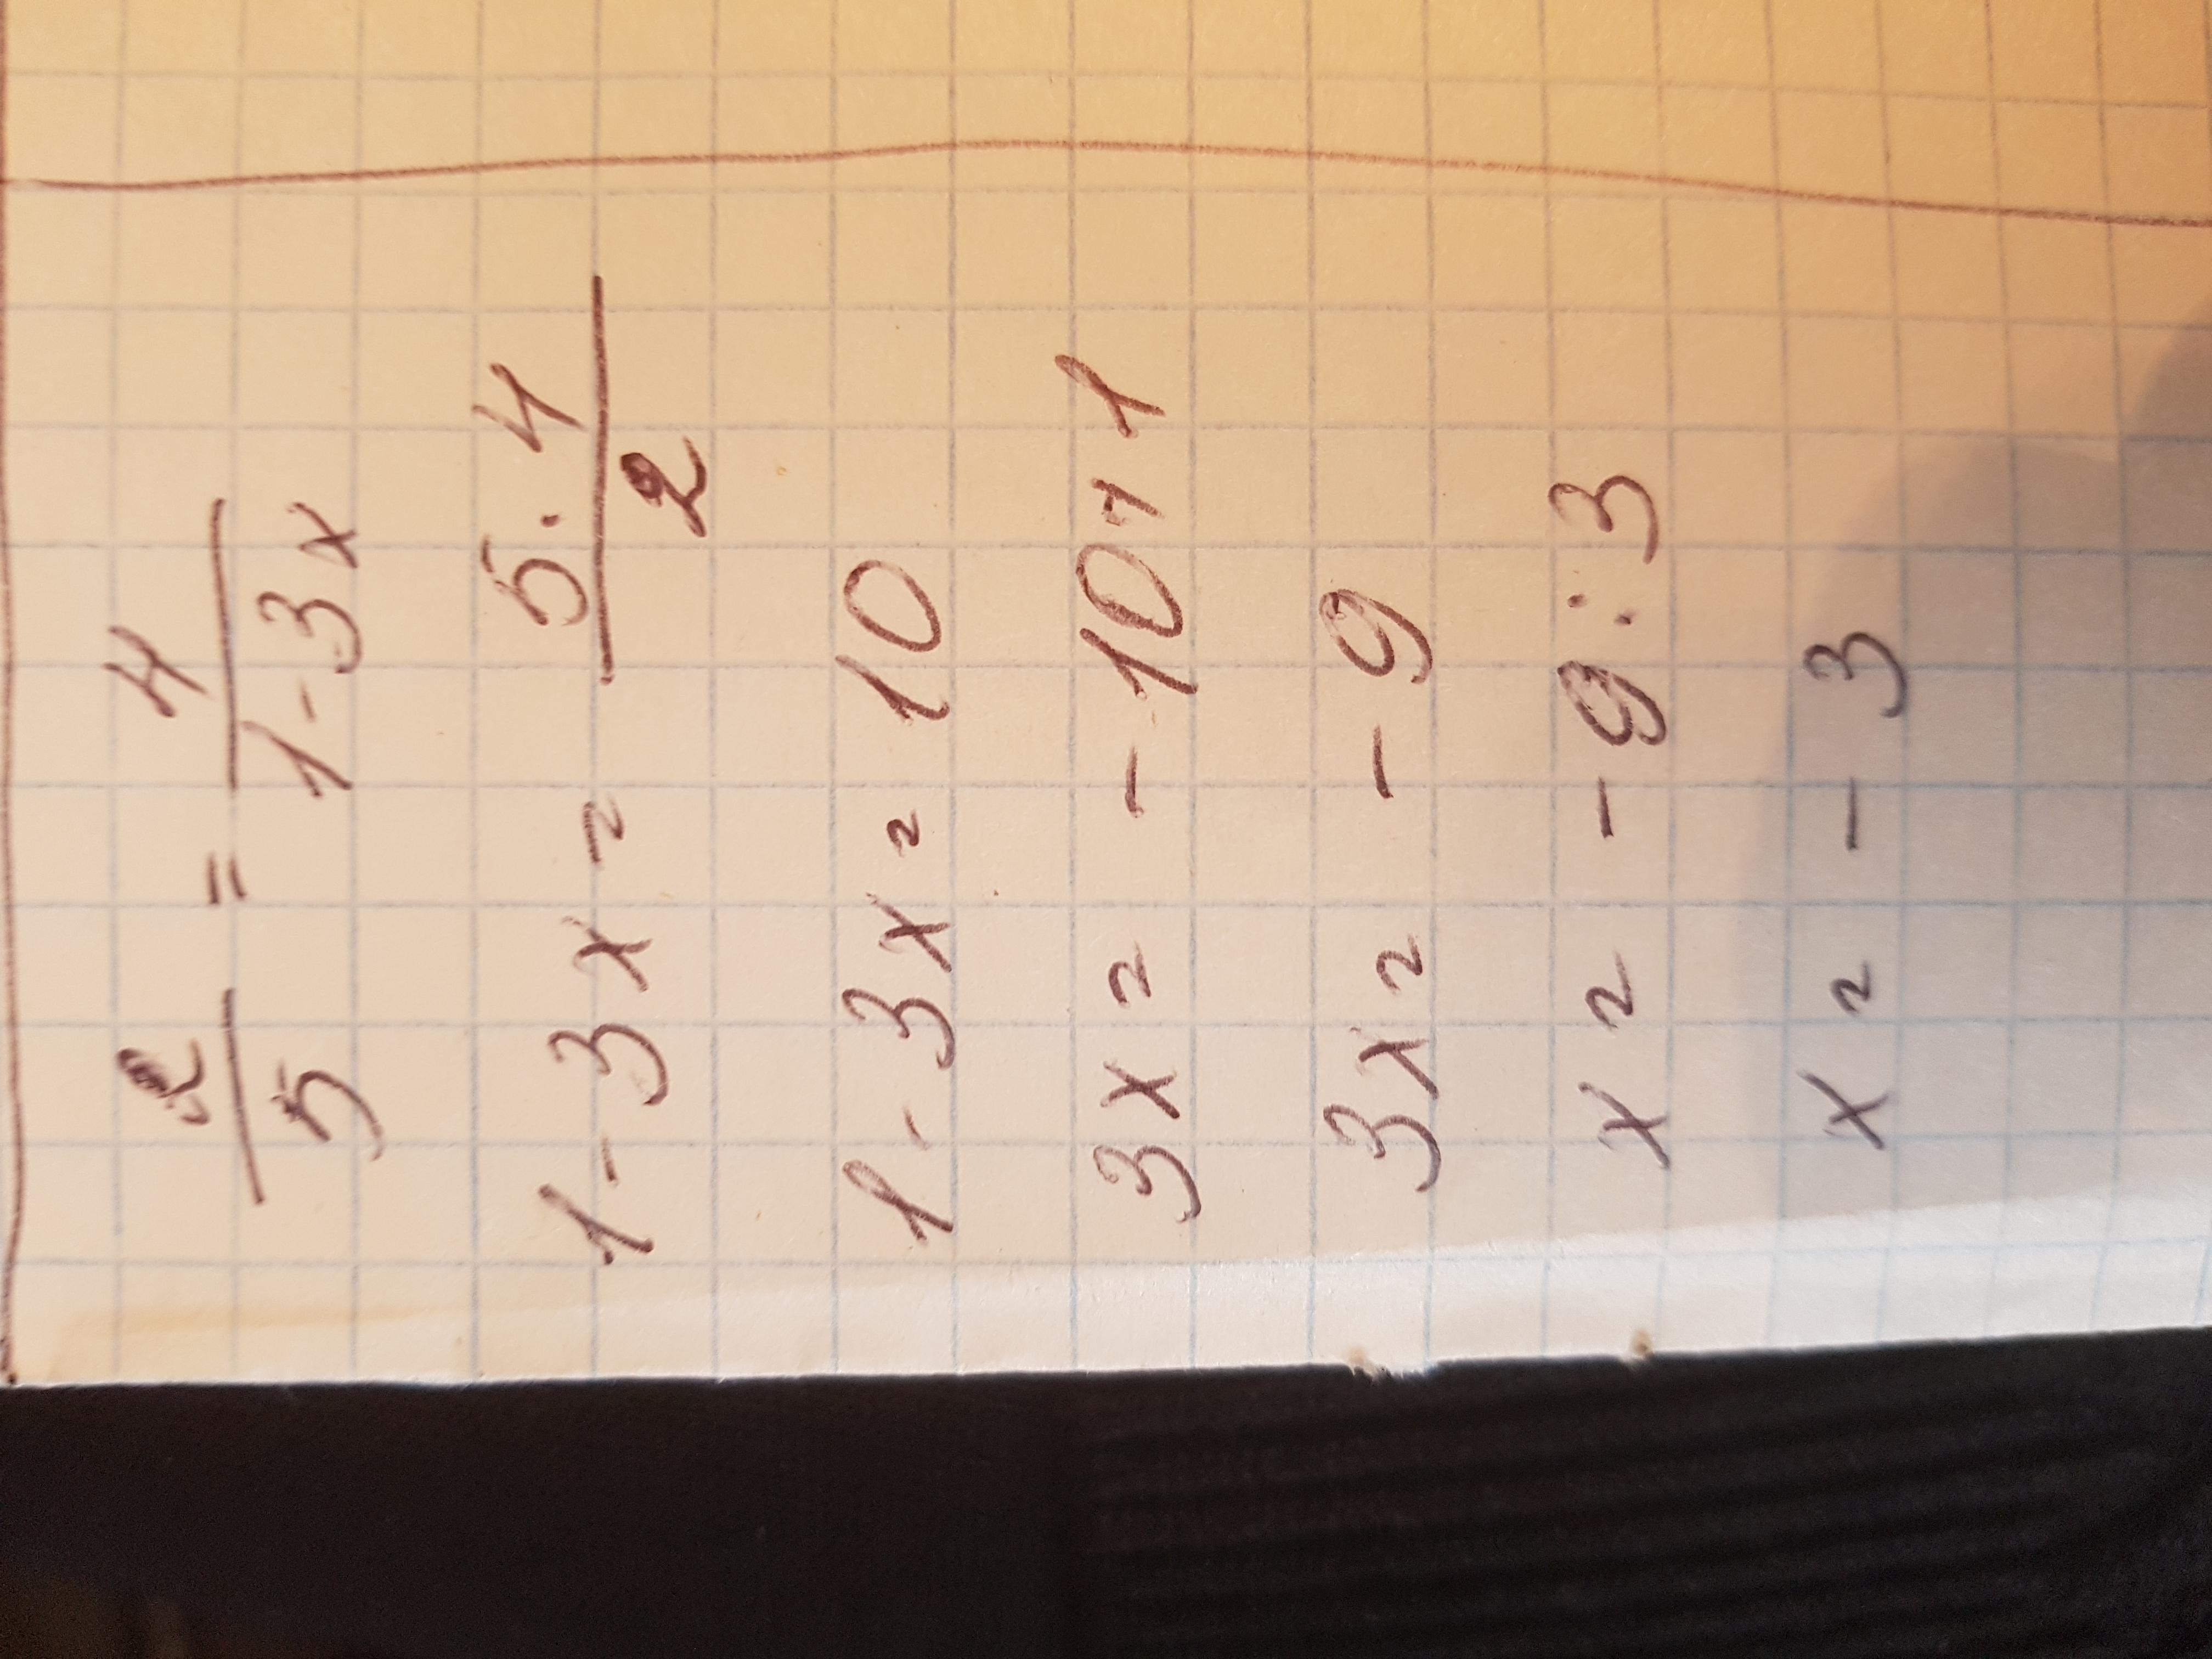 2/5 = 4/(1-3x)
1-3x = (5·4)/2
1-3x = 10
3x = -10+1
3x = -9
x = -9:3
x = -3